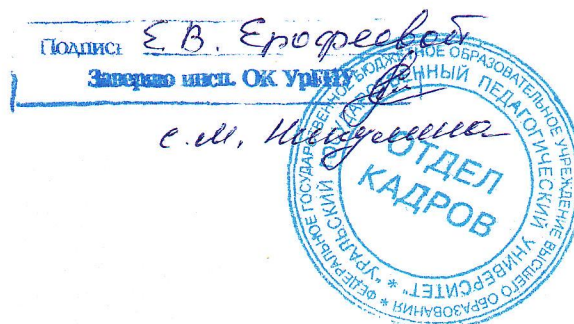 Подпись Е.В. Ерофеевой
Заверяю инсп. ОК УрГПУ
с.м. Никулина
ФЕДЕРАЛЬНОЕ ГОСУДАРСТВЕННОЕ БЮДЖЕТНОЕ ОБРАЗОВАТЕЛЬНОЕ УЧРЕЖДЕНИЕ ВЫСШЕГО ОБРАЗОВАНИЯ *
"УРАЛЬСКИЙ ГОСУДАРСТВЕННЫЙ ПЕДАГОГИЧЕСКИЙ УНИВЕРСИТЕТ" *
ОТДЕЛ
КАДРОВ